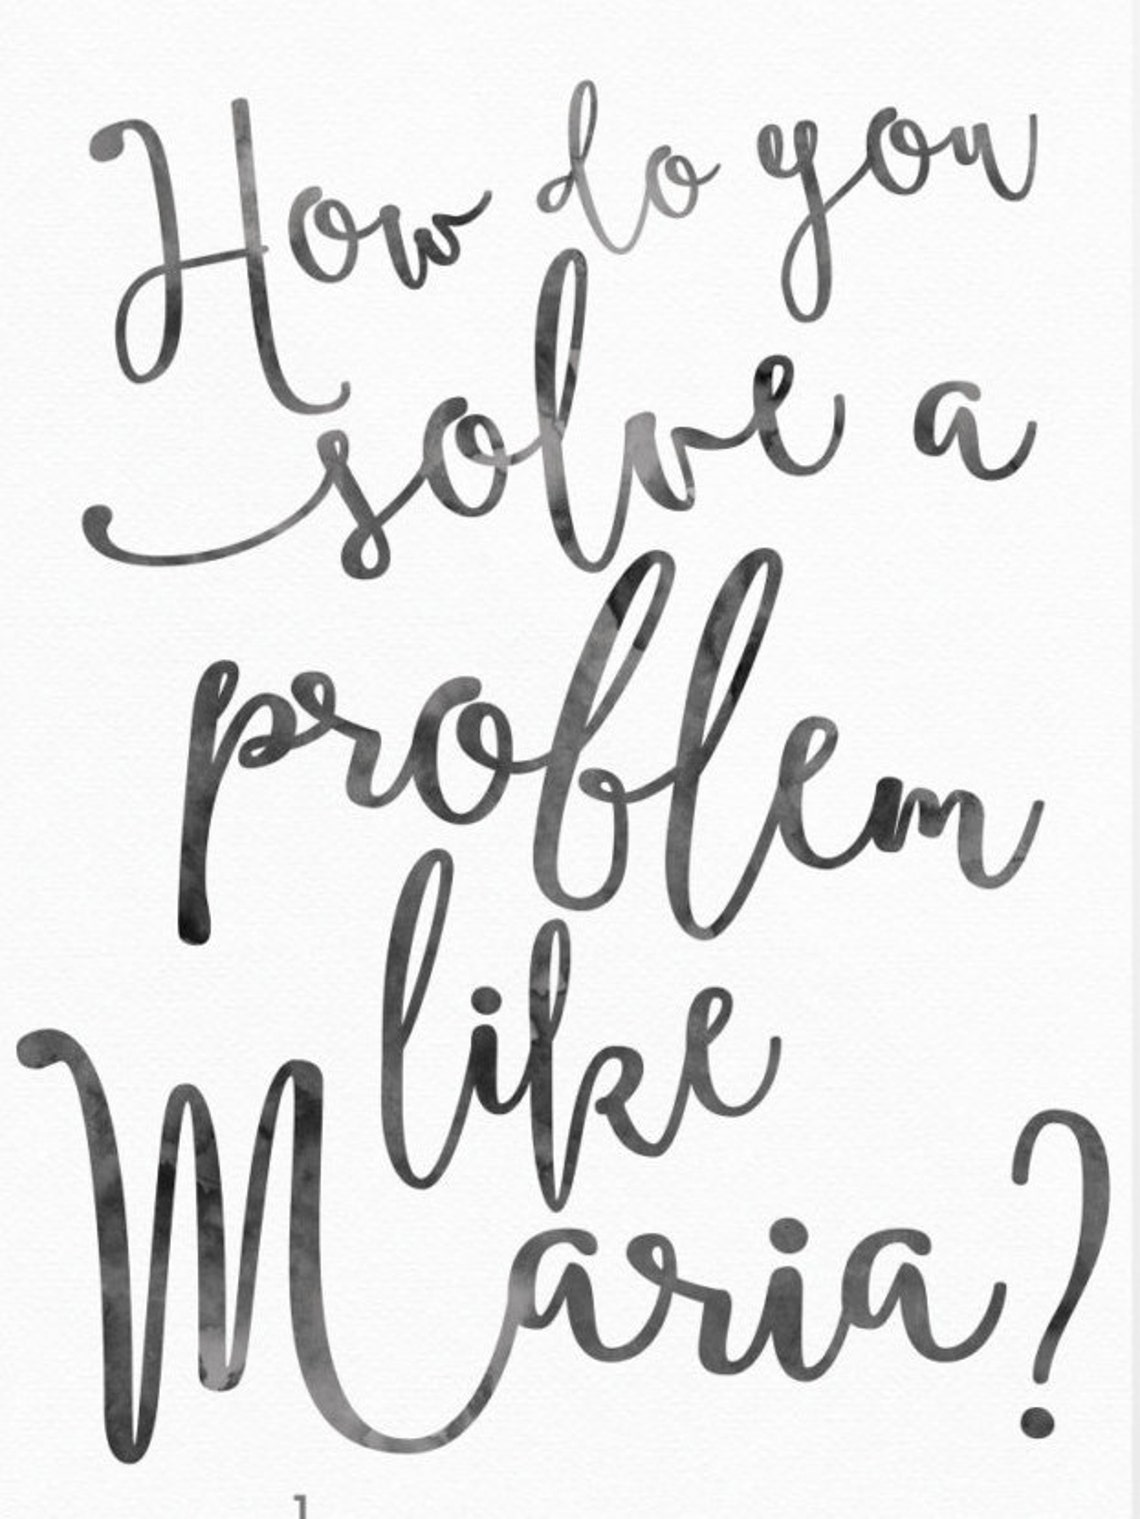 How do you
solve a
problem
like
Maria?
1